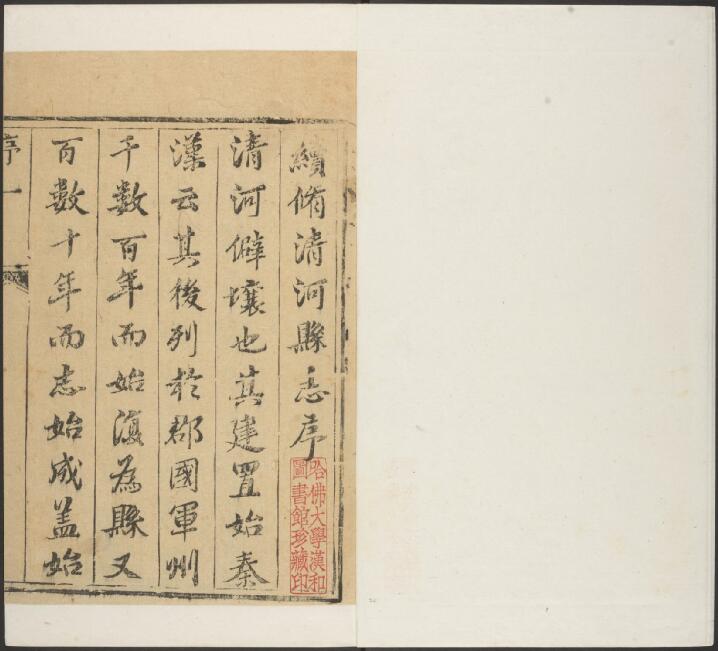 續脩清河縣志序
清河僻壤也其建置始秦
漢云其後列於郡國軍州
千數百年而始復為縣又
百數十年而志始成盖始
序一
哈佛大學漢和
圖書館珍藏印